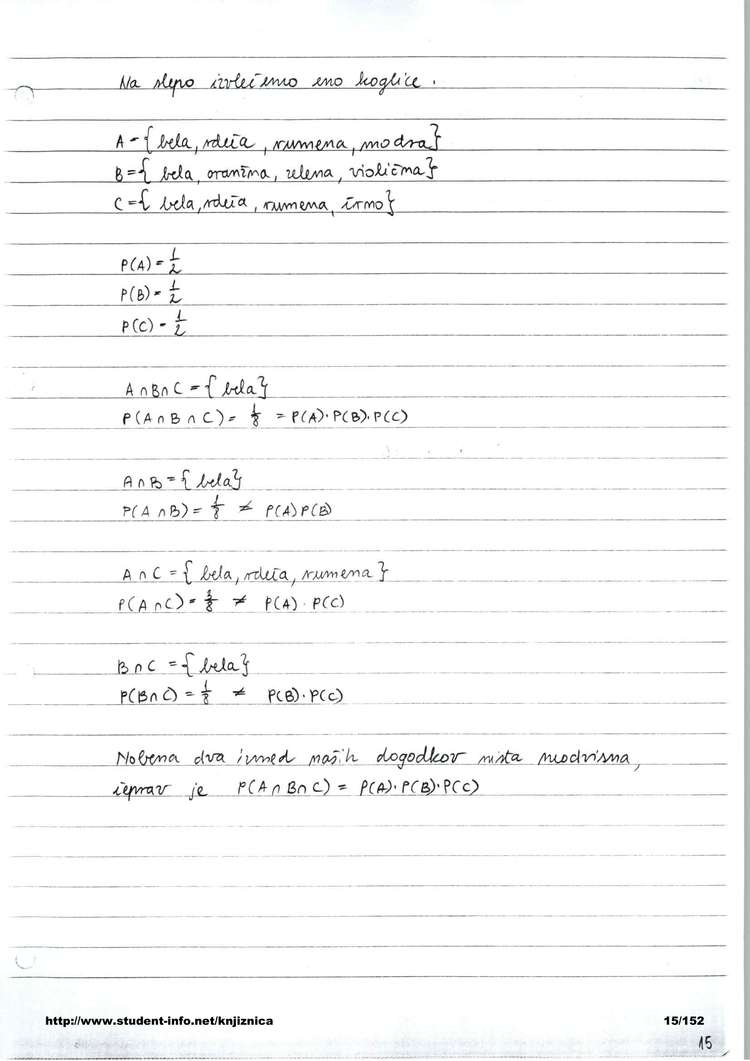 Na slepo izvlečemo eno kroglice.
A = {bela, rdeča, rumena, modra}
B = { bela, oranžna, zelena, vijolična}
C = { bela, rdeča, rumena, črno}
P(A) = 1/2
P(B) = 1/2
P(C) = 1/2
A ∩ B ∩ C = { bela}
P(A ∩ B ∩ C) = 1/8 = P(A)·P(B)·P(C)
A ∩ B = { bela}
P(A ∩ B) = 1/8 ≠ P(A)P(B)
A ∩ C = { bela, rdeča, rumena }
P(A ∩ C) = 3/8 ≠ P(A) · P(C)
B ∩ C = { bela}
P(B ∩ C) = 1/8 ≠ P(B)·P(C)
Nobena dva izmed naših dogodkov nista neodvisna,
čeprav je P(A ∩ B ∩ C) = P(A)·P(B)·P(C)
http://www.student-info.net/knjiznica 15/152
15